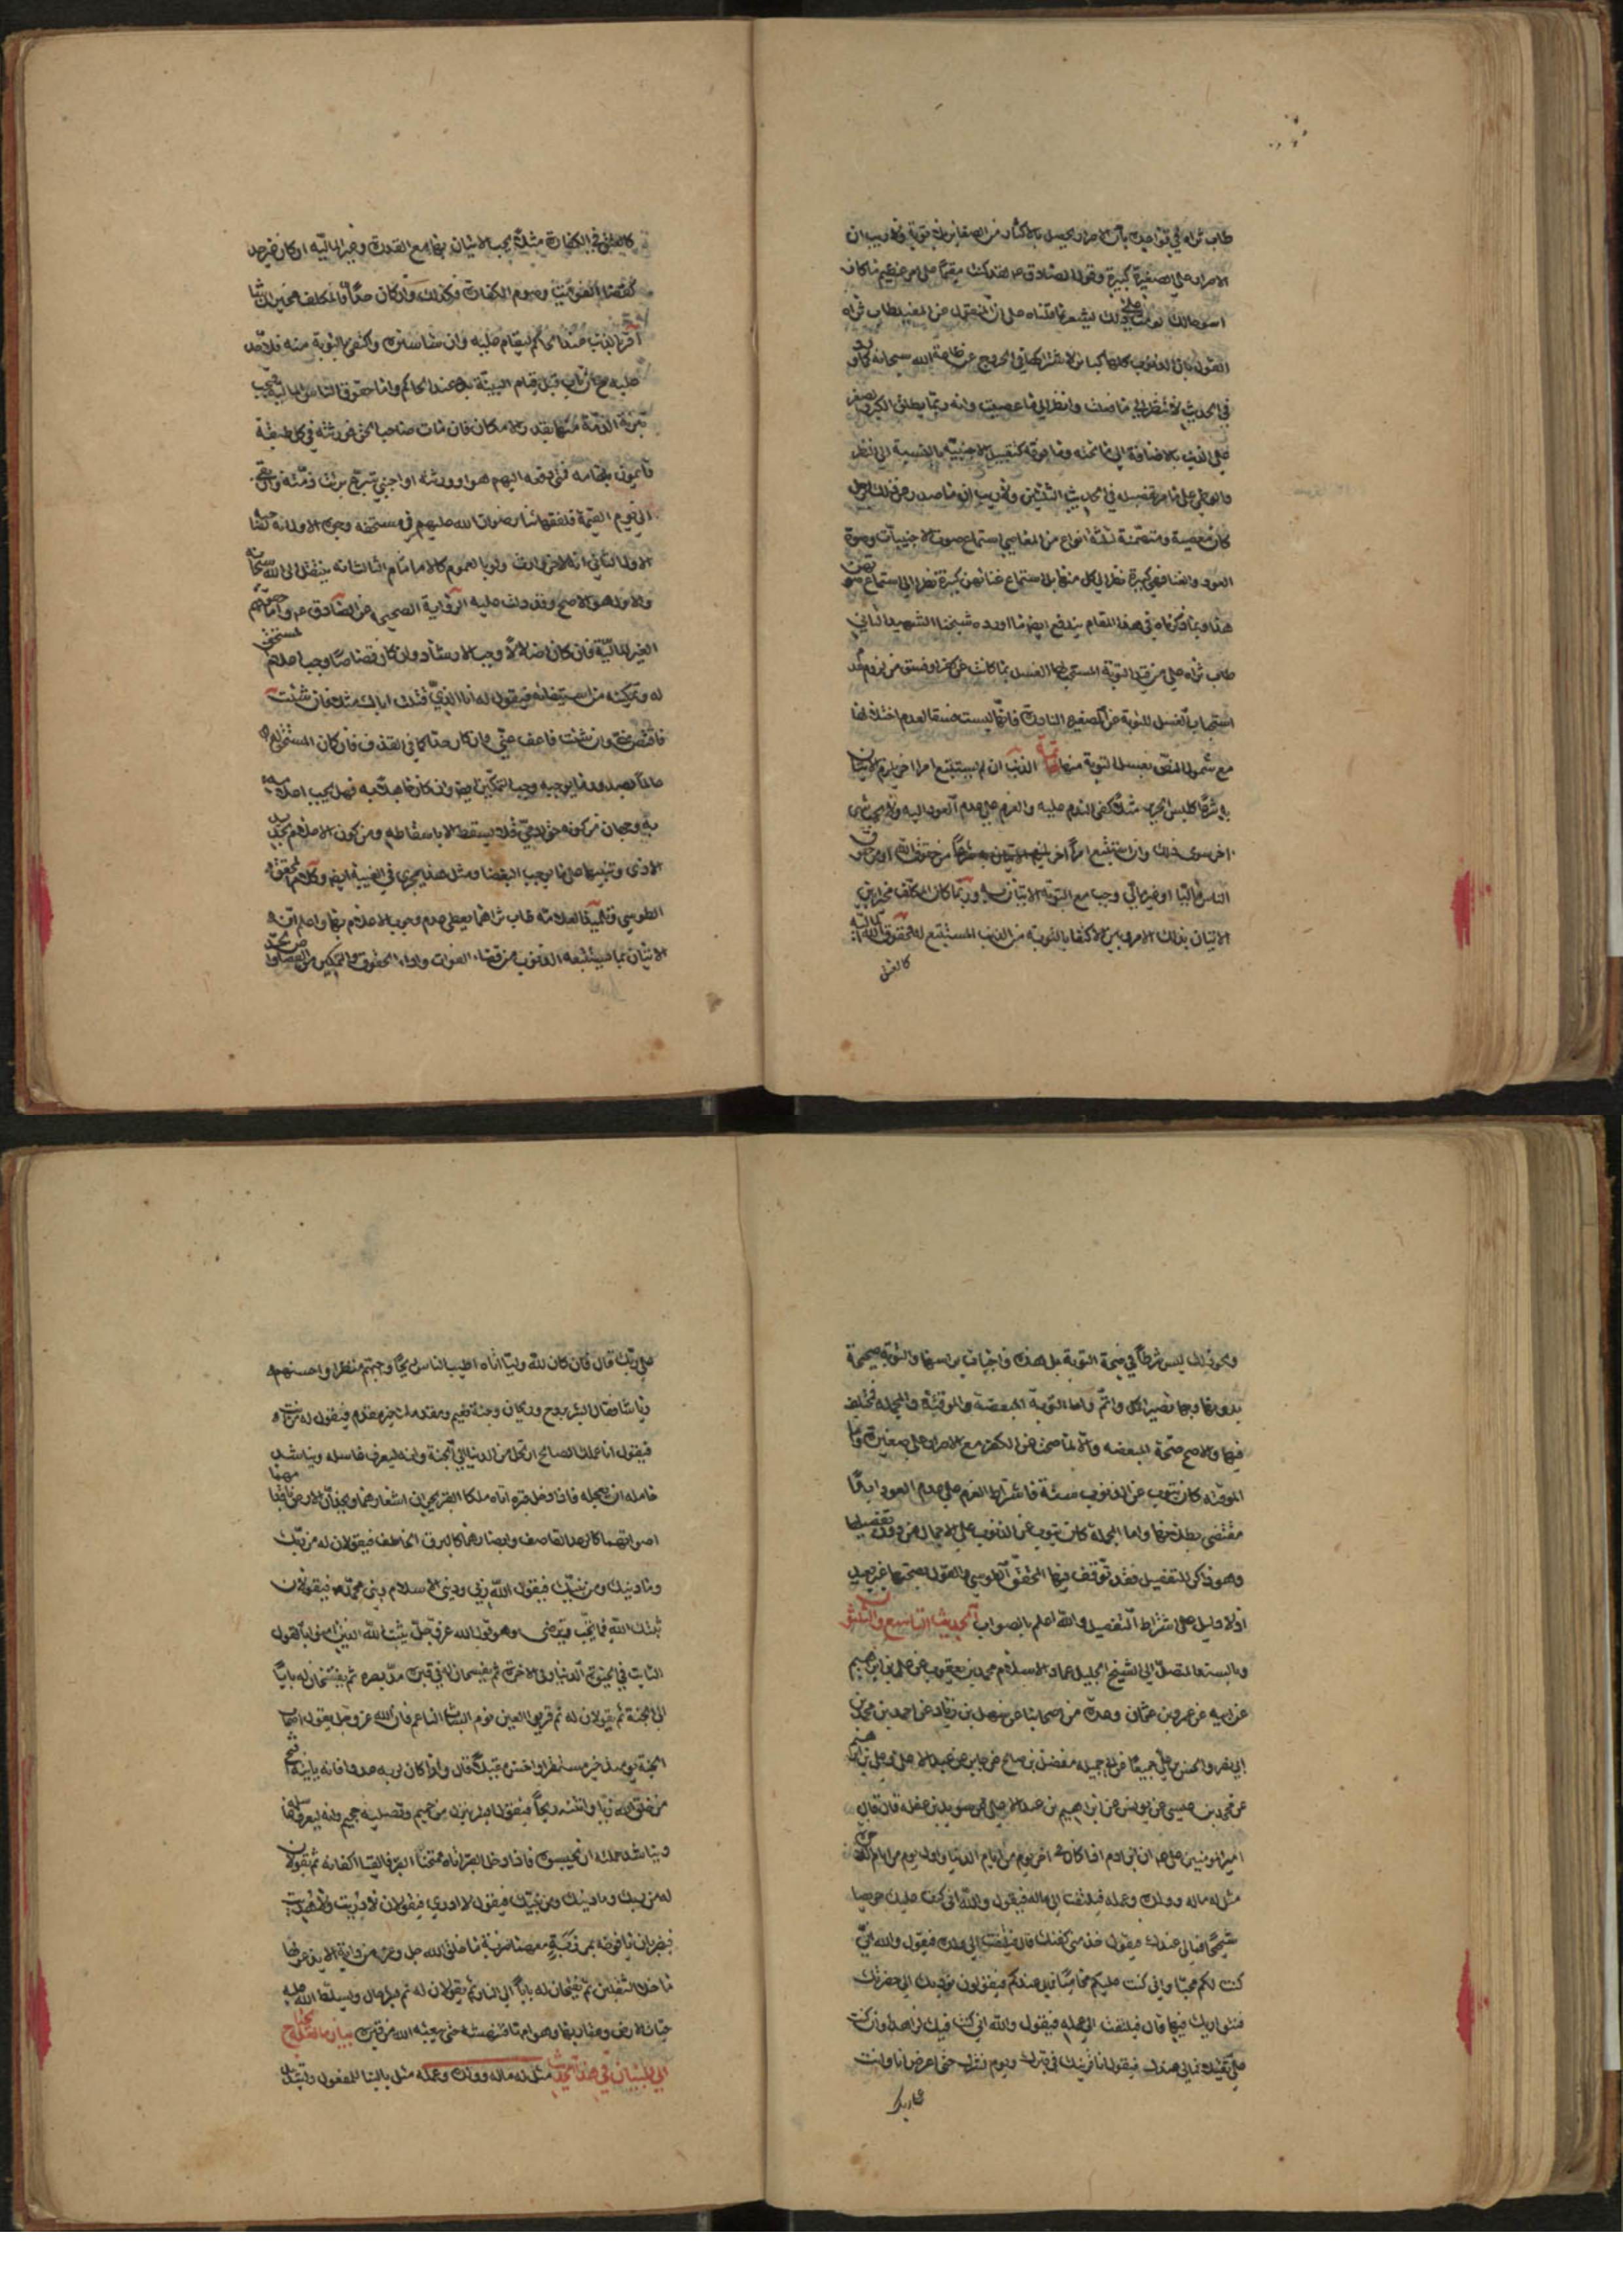 طاب ثراه في توجيهه بأن الاصرار يحصل بالاكثار من الصغاير بلا توبة ولا ريب ان
الاصرار على الصغيرة كبيرة وقول الصادق ع لقد كنت مقيما على امر عظيم ما كان
اسوء حالك لو مت على ذلك يشعر بما قلناه على ان المنقول عن المفيد طاب ثراه
القول بان الذنوب كلها كباير لاشتراكها في الخروج عن طاعة الله سبحانه كما ورد
في الحديث لا تنظر الى ما فعلت وانظر الى من عصيت وانه ربما يطلق الكبر والصغر
على الذنب بالاضافة الى ما تحته وما فوقه كتقبيل الاجنبية بالنسبة الى النظر
والوطي على ما مر تفصيله في الحديث الثلثين ولا ريب ان ما صدر عن ذلك الرجل
كان معصية ومتضمنة ثلثة انواع من المعاصي استماع صوت الاجنبيات وصوت
العود والغنا فهي كبيرة نظرا الى كل منها بل استماع غنائهن كبيرة نظرا الى استماع صوتهن
هذا وبما ذكرناه في هذا المقام يندفع ايضا ما اورده شيخنا الشهيد الثاني
طاب ثراه على من قيد التوبة المستحب لها الغسل بما كانت عن كفر او فسق من لزوم عدم
استحباب الغسل للتوبة عن الصغيرة النادرة فانها ليست فسقا لعدم اخلالها
مع شمول النص بغسل التوبة منها تتمة الذنب ان لم يستتبع امرا اخر يلزم الاتيان
به شرعا كلبس الحرير مثلا كفى الندم عليه والعزم على عدم العود اليه ولا يجب شيء
اخر سوى ذلك وان استتبع امرا اخر لزم الاتيان به شرعا من حقوق الله او من حقوق
الناس ماليا او غير مالي وجب مع التوبة الاتيان به وربما كان المكلف مخيرا بين
الاتيان بذلك الامر وبين الاكتفا بالتوبة من الذنب المستتبع له فحقوق الله المالية
كالعتق
كالعتق في الكفارة مثلا يجب الاتيان بها مع القدرة وغير المالية ان كان غير حد
كقضاء الفوائت وصوم الكفارة فكذلك وان كان حدا فالمكلف مخير ان شا
اقر بالذنب عند الحاكم ليقام عليه وان شا ستره واكتفى بالتوبة منه فلا حد
عليه ح ان تاب قبل قيام البينة به عند الحاكم واما حقوق الناس المالية فتجب
تبرئة الذمة منها بقدر الامكان فان مات صاحب الحق فورثته في كل طبقة
قائمون مقامه فمتى دفعه اليهم هو او ورثته او اجنبي متبرع برئت ذمته وان بقي
الى يوم القيمة فلفقهائنا رضوان الله عليهم في مستحقه وجوه الاول انه لصاحبه
الاول الثاني انه لاخر وارث ولو بالعموم كالامام الثالث انه ينتقل الى الله سبحانه
والاول هو الاصح وقد دلت عليه الرواية الصحيحة عن الصادق ع واما حقوقهم
الغير المالية فان كان اضلالا وجب الارشاد وان كان قصاصا وجب اعلام المستحق
له وتمكينه من استيفائه فيقول له انا الذي قتلت اباك مثلا فان شئت
فاقتص مني وان شئت فاعف عني وان كان حدا كما في القذف فان كان المستحق له
عالما بصدور ما يوجبه وجب التمكين ايضا وان كان جاهلا به فهل يجب اعلامه
به وجهان من كونه حق ادمي فلا يسقط الا باسقاطه ومن كون الاعلام تجديد
الاذى وتنبيها على ما يوجب البغضا ومثل هذا يجري في الغيبة ايضا وكلام المحقق
الطوسي وتلميذه العلامة طاب ثراهما يعطي عدم وجوب الاعلام بها واعلم ان
الاتيان بما يستتبعه الذنوب من قضاء الفوائت واداء الحقوق والتمكين من القصاص والحد
ونحو ذلك ليس شرطا في صحة التوبة بل هذه واجبات براسها والتوبة صحيحة
بدونها وبها تصير اكمل واتم واما التوبة المبعضة والموقتة والمجملة فمختلف
فيها والاصح صحة المبعضه والا لما صحت عن الكفر مع الاصرار على صغيرة واما
الموقته كان يتوب عن الذنوب سنة فاشتراط العزم على عدم العود ابدا
مقتضى بطلانها واما المجملة كان يتوب عن الذنوب على الاجمال من دون تفصيلها
وهو ذاكر للتفصيل فقد توقف فيها المحقق الطوسي والقول بصحتها غير بعيد
اذ لا دليل على اشتراط التفصيل والله اعلم بالصواب الحديث التاسع والثلثون
وبالسند المتصل الى الشيخ الجليل عماد الاسلام محمد بن يعقوب عن علي بن ابراهيم
عن ابيه عن عمرو بن عثمان وعدة من اصحابنا عن سهل بن زياد عن احمد بن محمد بن
ابي نصر والحسن بن علي جميعا عن ابي جميله مفضل بن صالح عن جابر عن عبد الاعلى وعلي بن ابراهيم
عن محمد بن عيسى عن يونس عن ابراهيم بن عبد الاعلى عن سويد بن غفله قال قال
امير المؤمنين على ع ان ابن ادم اذا كان في اخر يوم من ايام الدنيا واول يوم من ايام الاخرة
مثل له ماله وولده وعمله فيلتفت الى ماله فيقول والله اني كنت عليك حريصا
شحيحا فما لي عندك فيقول خذ مني كفنك قال فيلتفت الى ولده فيقول والله اني
كنت لكم محبا واني كنت عليكم محاميا فما لي عندكم فيقولون نؤديك الى حفرتك
فنواريك فيها قال فيلتفت الى عمله فيقول والله اني كنت فيك لزاهدا وان كنت
علي لثقيلا فما لي عندك فيقول انا قرينك في قبرك ويوم نشرك حتى اعرض انا وانت
على ربك
على ربك قال فان كان لله وليا اتاه اطيب الناس ريحا واجملهم منظرا واحسنهم
رياشا فقال ابشر بروح وريحان وجنة نعيم ومقدمك خير مقدم فيقول له من انت
فيقول انا عملك الصالح ارتحل من الدنيا الى الجنة وانه ليعرف غاسله ويناشد
حامله ان يعجله فاذا دخل قبره اتاه ملكا القبر يجران اشعارهما ويخدان الارض باقدامهما
اصواتهما كالرعد القاصف وابصارهما كالبرق الخاطف فيقولان له من ربك
وما دينك ومن نبيك فيقول الله ربي وديني الاسلام ونبيي محمد ص فيقولان
ثبتك الله فيما تحب وترضى وهو قول الله عز وجل يثبت الله الذين امنوا بالقول
الثابت في الحيوة الدنيا وفي الاخرة ثم يفسحان له في قبره مد بصره ثم يفتحان له بابا
الى الجنة ثم يقولان له نم قرير العين نوم الشاب الناعم فان الله عز وجل يقول اصحاب
الجنة يومئذ خير مستقرا واحسن مقيلا قال واذا كان لربه عدوا فانه ياتيه اقبح
من خلق الله زيا وانتنه ريحا فيقول ابشر بنزل من حميم وتصلية جحيم وانه ليعرف غاسله
ويناشد حملته ان يحبسوه فاذا دخل القبر اتاه ممتحنا القبر فالقيا اكفانه ثم يقولان
له من ربك وما دينك ومن نبيك فيقول لا ادري فيقولان لا دريت ولا هديت
فيضربان يافوخه بمرزبة معهما ضربة ما خلق الله جل وعز من دابة الا يذعر لها
ما خلا الثقلين ثم يفتحان له بابا الى النار ثم يقولان له نم بشر حال ويسلط الله عليه
حيات الارض وعقاربها وهوامها فتنهشه حتى يبعثه الله من قبره بيان ما لعله يحتاج
الى البيان في هذا الحديث مثل له ماله وولده وعمله مثل بالبنا للمفعول وتشديد